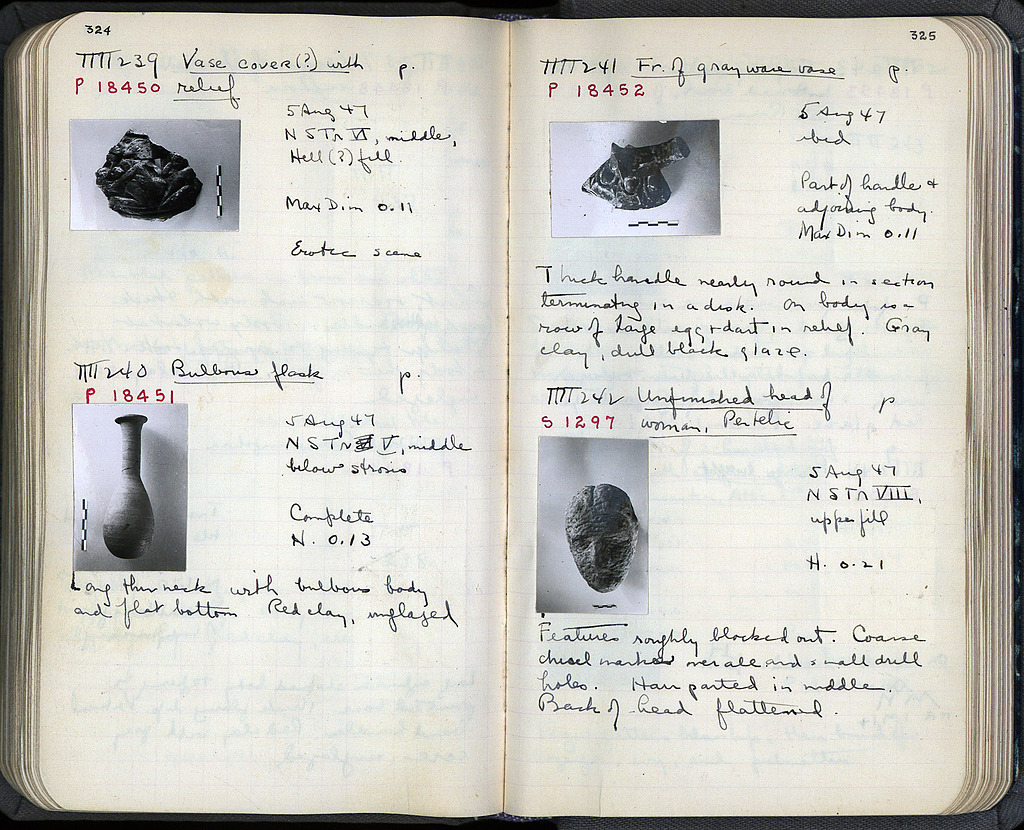 324
ΠΠ239 Vase cover(?) with p.
P 18450 relief
5 Aug 47
N S Tr VI, middle,
Hell(?) fill.
Max Dim 0.11
Erotic scene
ΠΠ240 Bulbous flask p.
P 18451
5 Aug 47
N S Tr V, middle
below strosis
Complete
H. 0.13
Long thin neck with bulbous body
and flat bottom Red clay, unglazed
325
ΠΠ241 Fr. of gray ware vase p.
P 18452
5 Aug 47
ibid
Part of handle +
adjoining body.
Max Dim 0.11
Thick handle nearly round in section
terminating in a disk. On body is a
row of large egg + dart in relief. Gray
clay, dull black glaze.
ΠΠ242 Unfinished head of p
S 1297 woman, Pentelic
5 Aug 47
N S Tr VIII,
upper fill
H. 0.21
Features roughly blocked out. Coarse
chisel marks over all and small drill
holes. Hair parted in middle.
Back of head flattened.